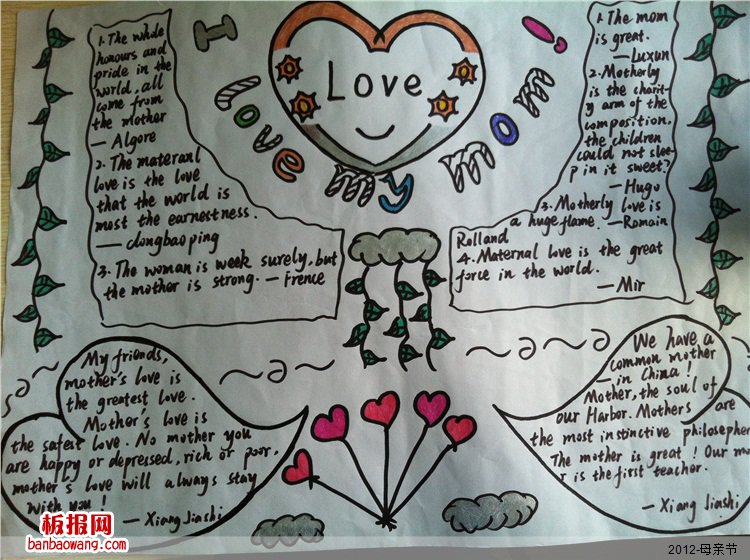 I love my mom!
Love
1. The whole
honours and
pride in the
world, all
come from
the mother
— Algore
2. The materanl
love is the love
that the world is
most the earnestness.
— dongbaoping
3. The woman is week surely, but
the mother is strong. — Frence
1. The mom
is great.
— Luxun
2. Motherly
is the charit-
y arm of the
composition.
the children
could not slee-
p in it sweet?
— Hugo
3. Motherly love is
a huge flame. — Romain
Rolland
4. Maternal love is the great
force in the world.
— Mir
My friends,
mother's love is
the greatest love.
Mother's love is
the safest love. No mother you
are happy or depressed, rich or poor,
mother's love will always stay
with you!
— Xiang Jiashi
We have a
common mother
— in China!
Mother, the soul of
our Harbor. Mothers are
the most instinctive philosepher
The mother is great! Our mo
r is the first teacher.
— Xiang Jiashi
板报网
banbaowang.com
2012-母亲节